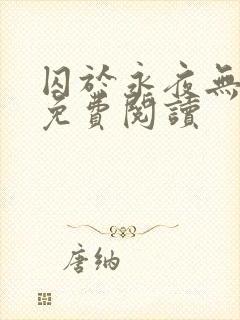 囚於永夜無
免費閱讀
唐纳